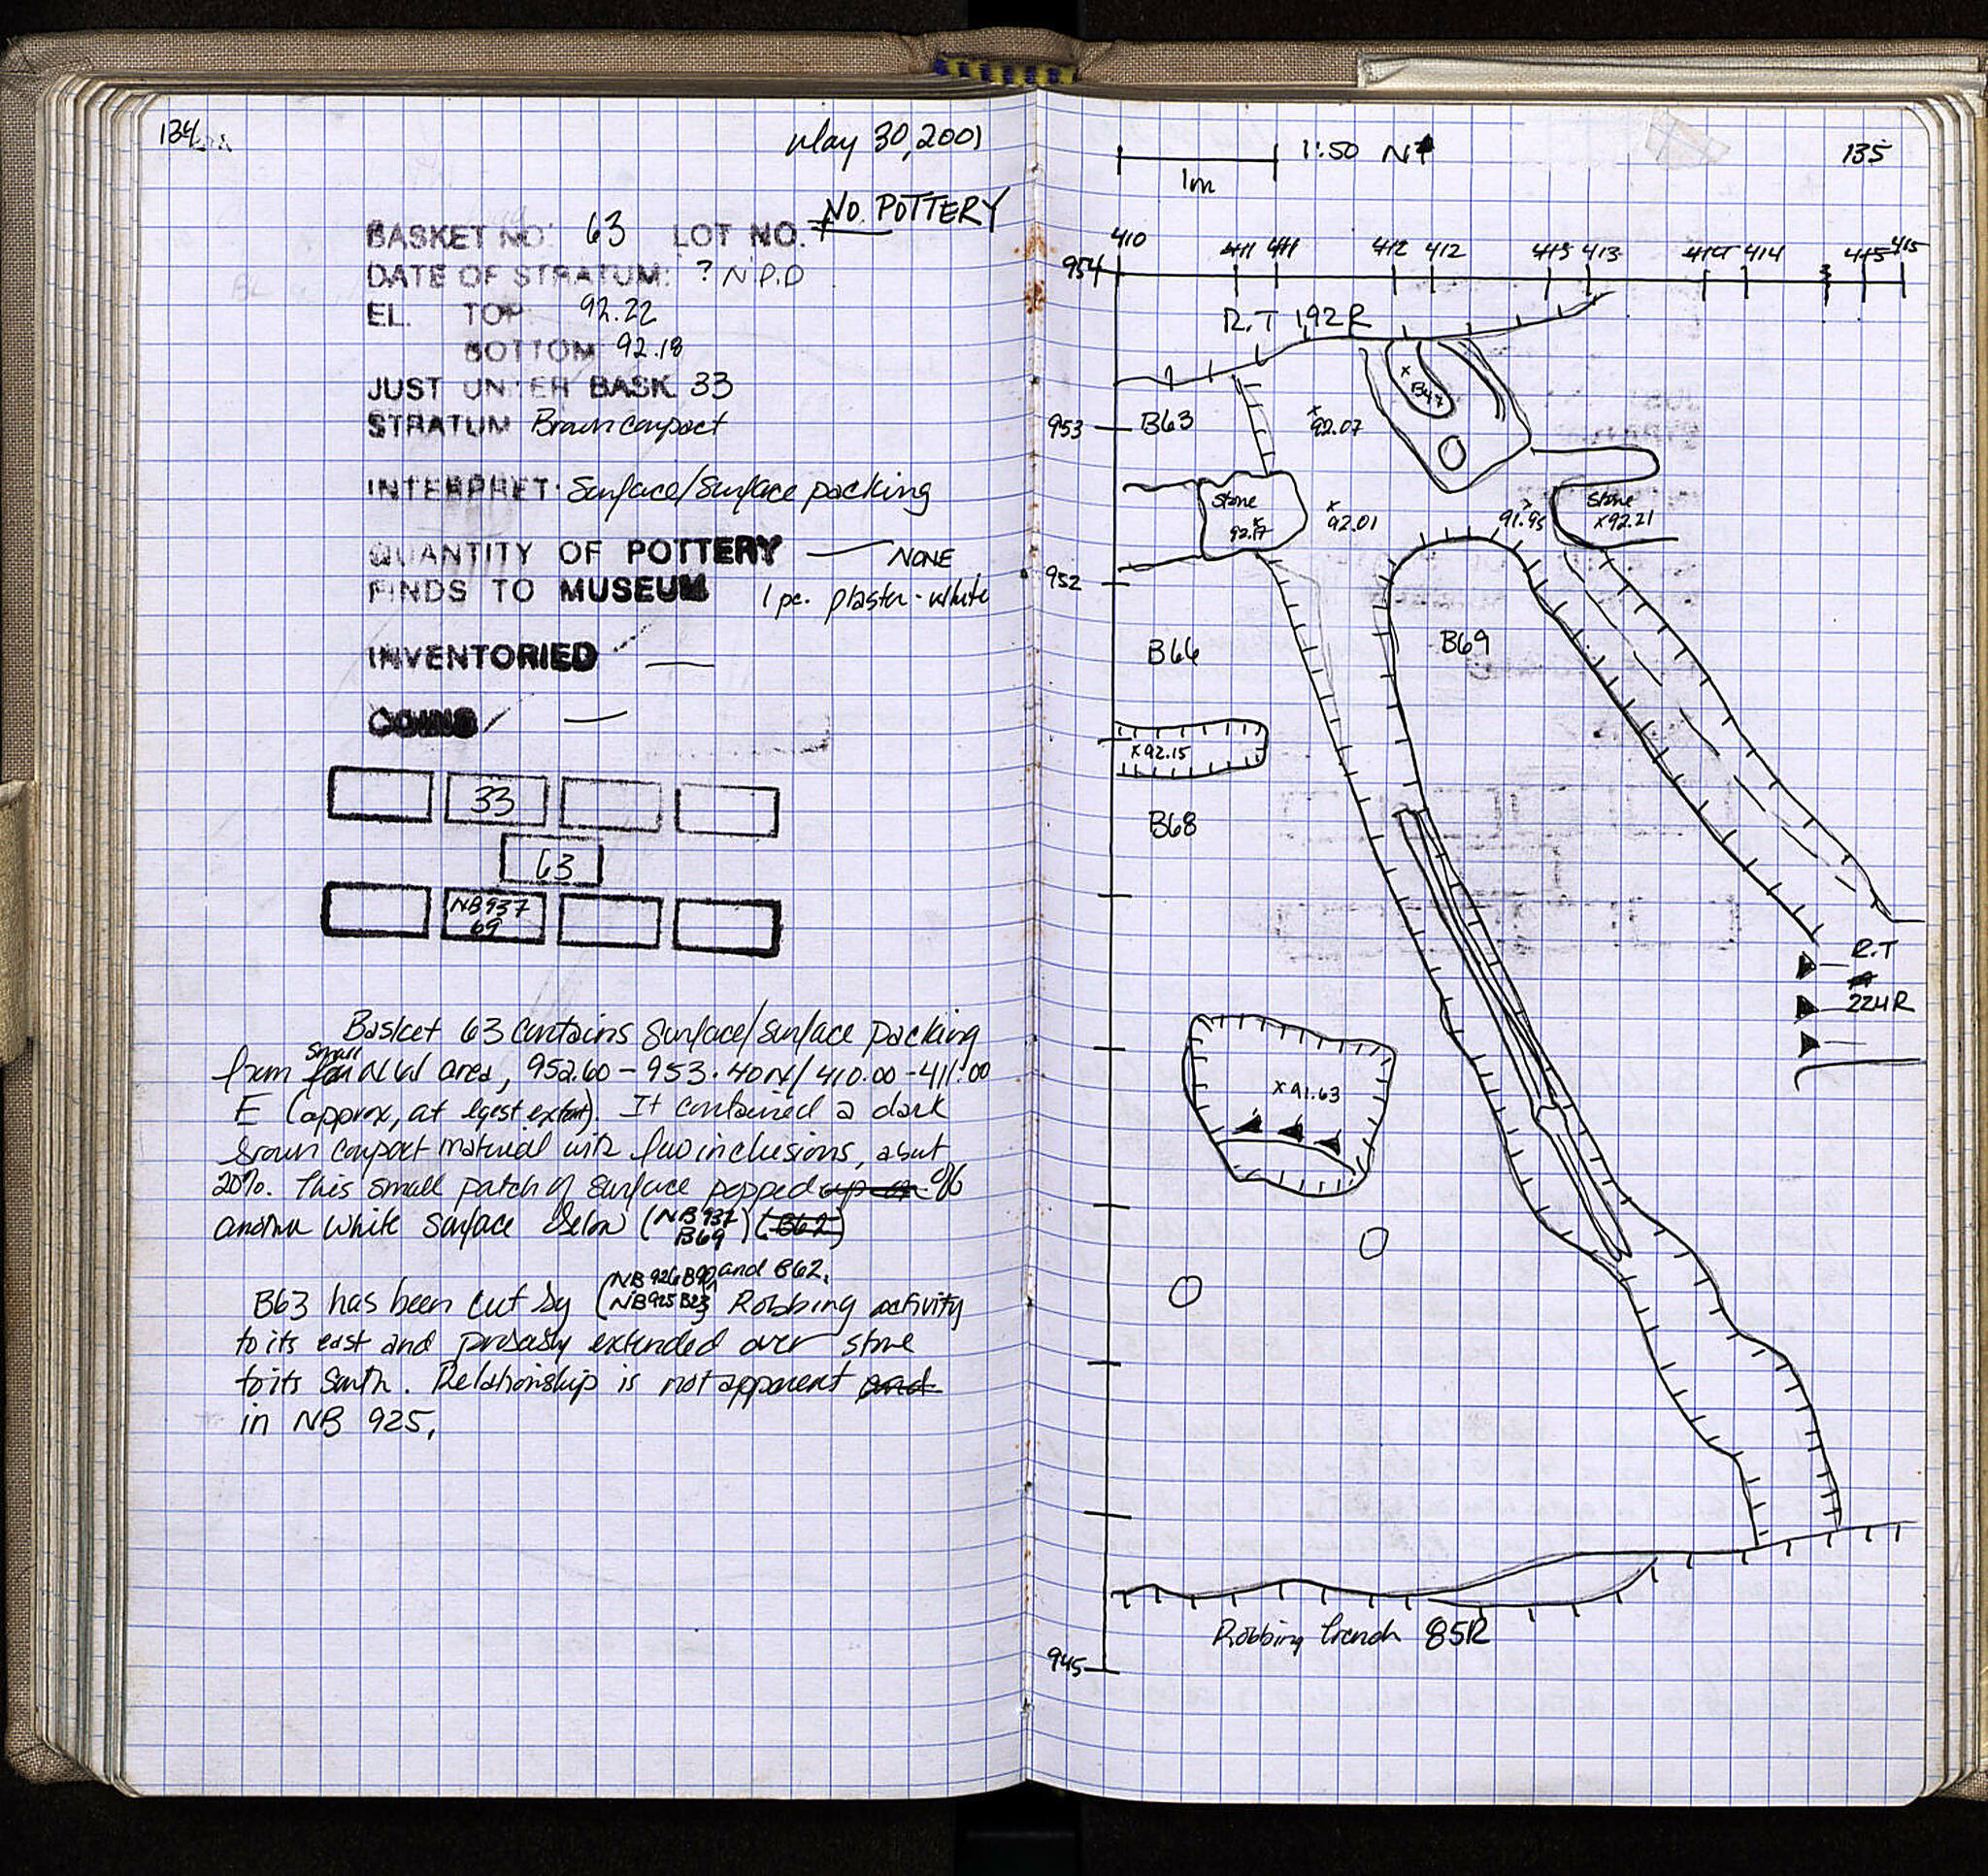 134
May 30, 2001
BASKET NO. 63 LOT NO. NO. POTTERY
DATE OF STRATUM: ? N.P.D
EL. TOP 92.22
BOTTOM 92.18
JUST UNDER BASK 33
STRATUM Brown compact
INTERPRET: Surface/Surface packing
QUANTITY OF POTTERY — NONE
FINDS TO MUSEUM 1 pc. plaster - white
INVENTORIED —
COINS —
33
63
NB 937
69
Basket 63 contains Surface/surface packing
from small NW area, 952.60 - 953.40 N/ 410.00 - 411.00
E (approx, at lgest extent). It contained a dark
brown compact material with few inclusions, about
20%. This small patch of surface popped up on off
another white surface below (NB 937 B69) (B62)
B63 has been cut by (NB 926 B90, NB 925 B23) and B62. Robbing activity
to its east and probably extended over stone
to its South. Relationship is not apparent and
in NB 925.
135
1:50 N
1m
410 411 411 412 412 413 413 414 414 415 415
954
R.T 192R
B47
B63
953
92.07
Stone
92.17
92.01
91.95
Stone
92.21
952
B66
B69
92.15
B68
R.T
224R
91.63
Robbing trench 85R
945